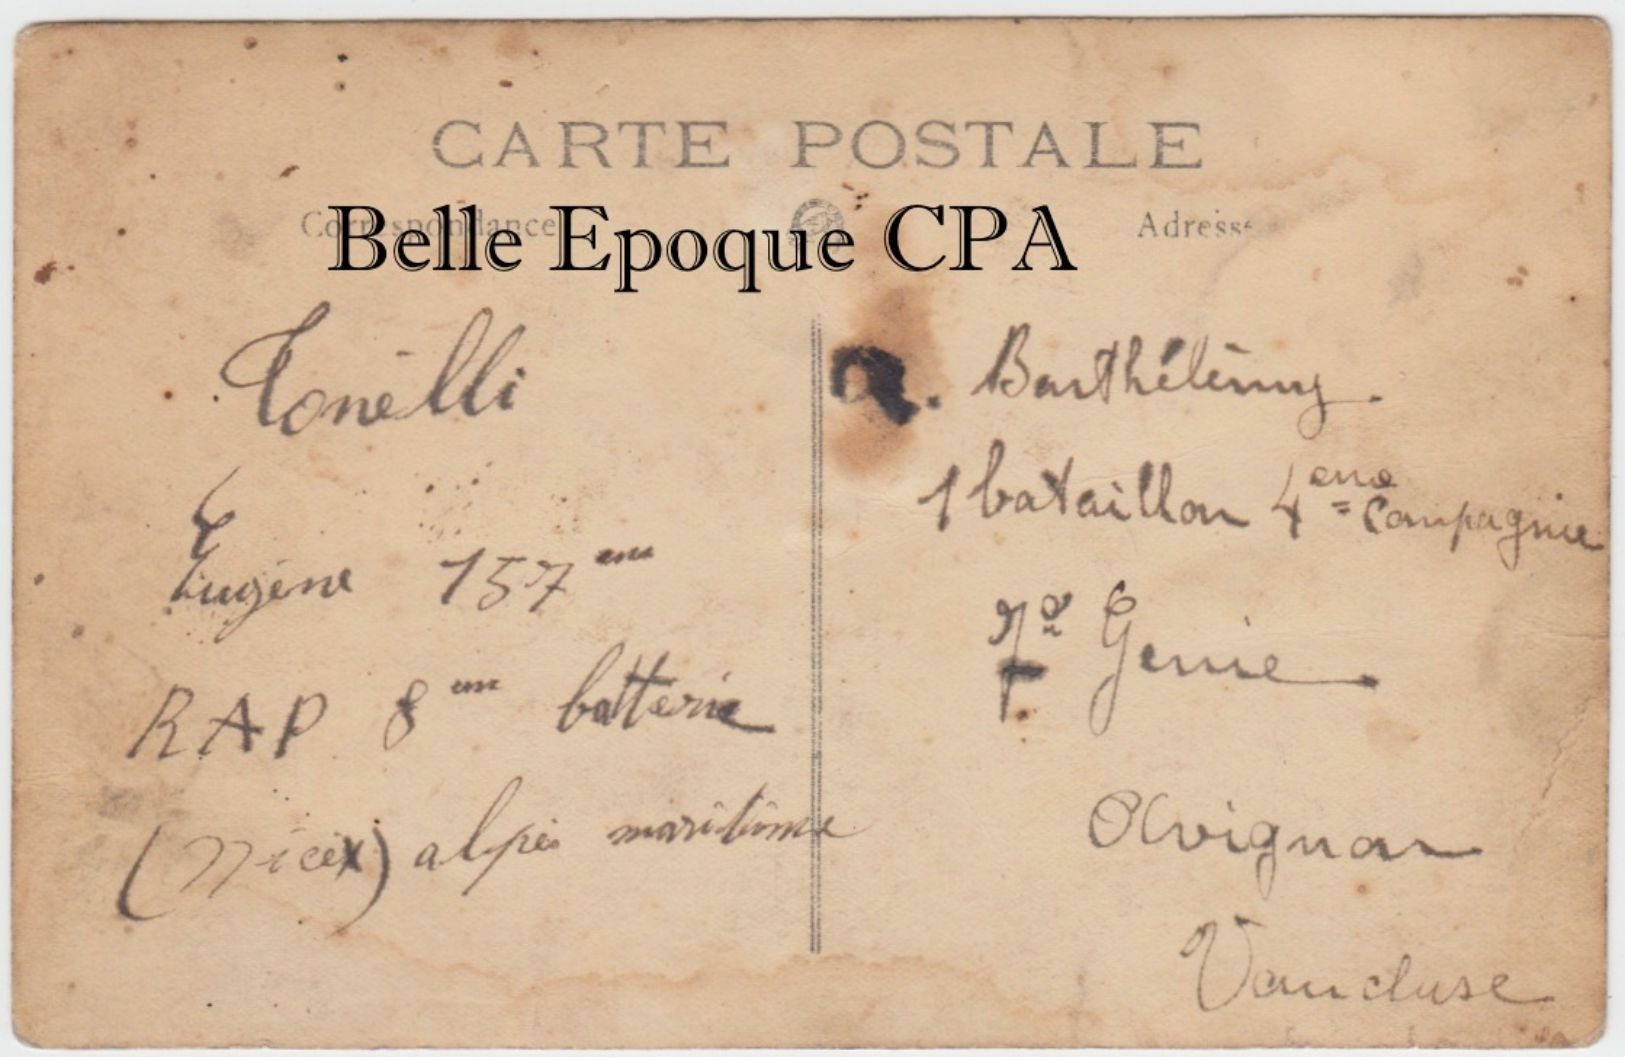 CARTE POSTALE
Correspondance
Adresse
Belle Epoque CPA
Tonélli
Eugène 157eme
RAP 8eme batterie
(Nice) alpes maritime
a. Barthélémy.
1 bataillon 4eme Compagnie
7e Genie
Avignon
Vaucluse